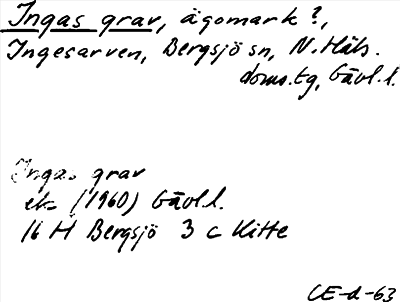 Ingas grav, ägomark?,
Ingesarven, Bergsjö sn, N. Häls.
doms.tg, Gävl.l.
Ingas grav
ek (1960) Gävl.l.
16 H Bergsjö 3 c Kitte
CE-d-63